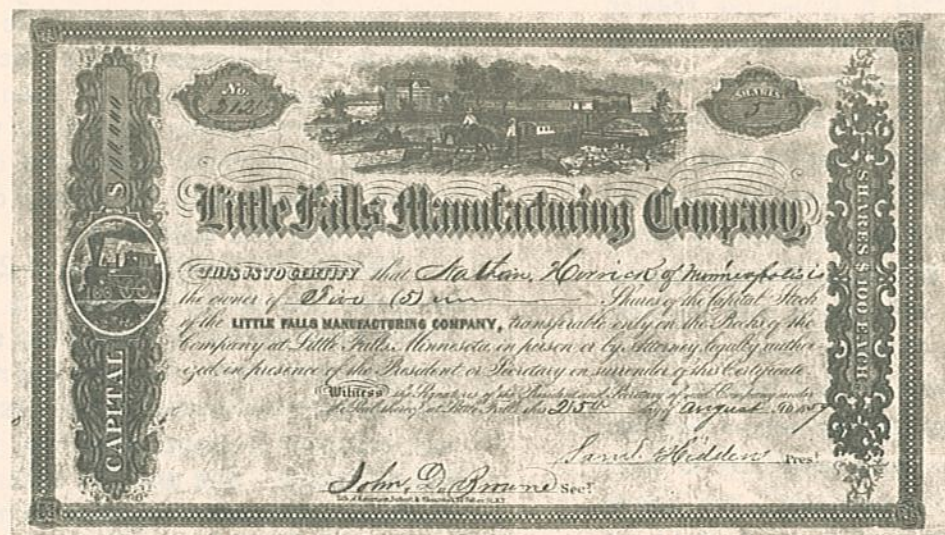 No.
212
SHARES
5
CAPITAL $
SHARES $100 EACH
Little Falls Manufacturing Company,
THIS IS TO CERTIFY that Nathan Herrick of Minneapolis is
the owner of Five (5) Shares of the Capital Stock
of the LITTLE FALLS MANUFACTURING COMPANY, transferable only on the Books of the
Company at Little Falls, Minnesota, in person or by Attorney legally author
ized, in presence of the President or Secretary on surrender of this Certificate.
Witness the Signatures of the President and Secretary of said Company under
the Seal thereof at Little Falls this 25th day of August
Saml. Hidden Prest.
John D. Browne Secy.